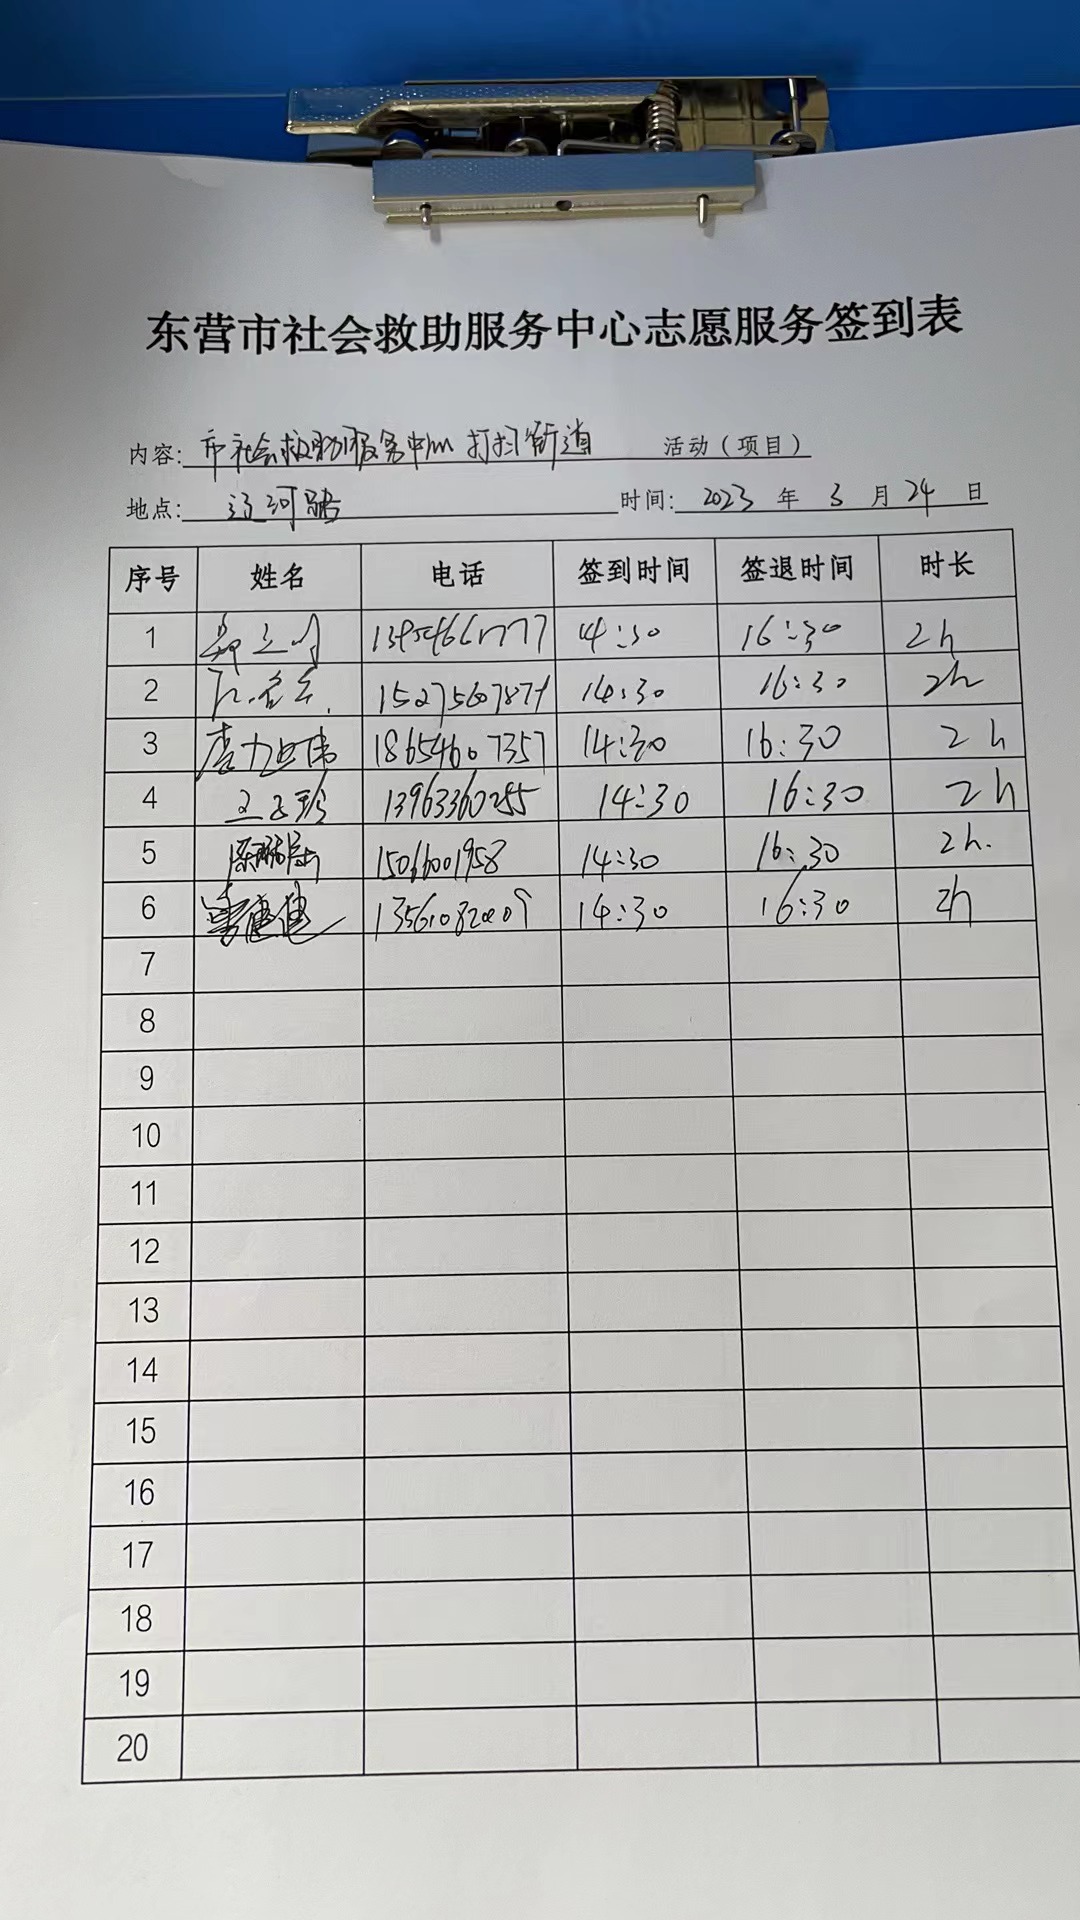 东营市社会救助服务中心志愿服务签到表
内容: 市社会救助服务中心 打扫街道 活动（项目）
地点: 辽河路 时间: 2023 年 3 月 24 日
序号 姓名 电话 签到时间 签退时间 时长
1 4:30 16:30 2h
2 14:30 16:30 2h
3 18654607357 14:30 16:30 2h
4 13963360255 14:30 16:30 2h
5 15066001958 14:30 16:30 2h.
6 14:30 16:30 2h
7
8
9
10
11
12
13
14
15
16
17
18
19
20